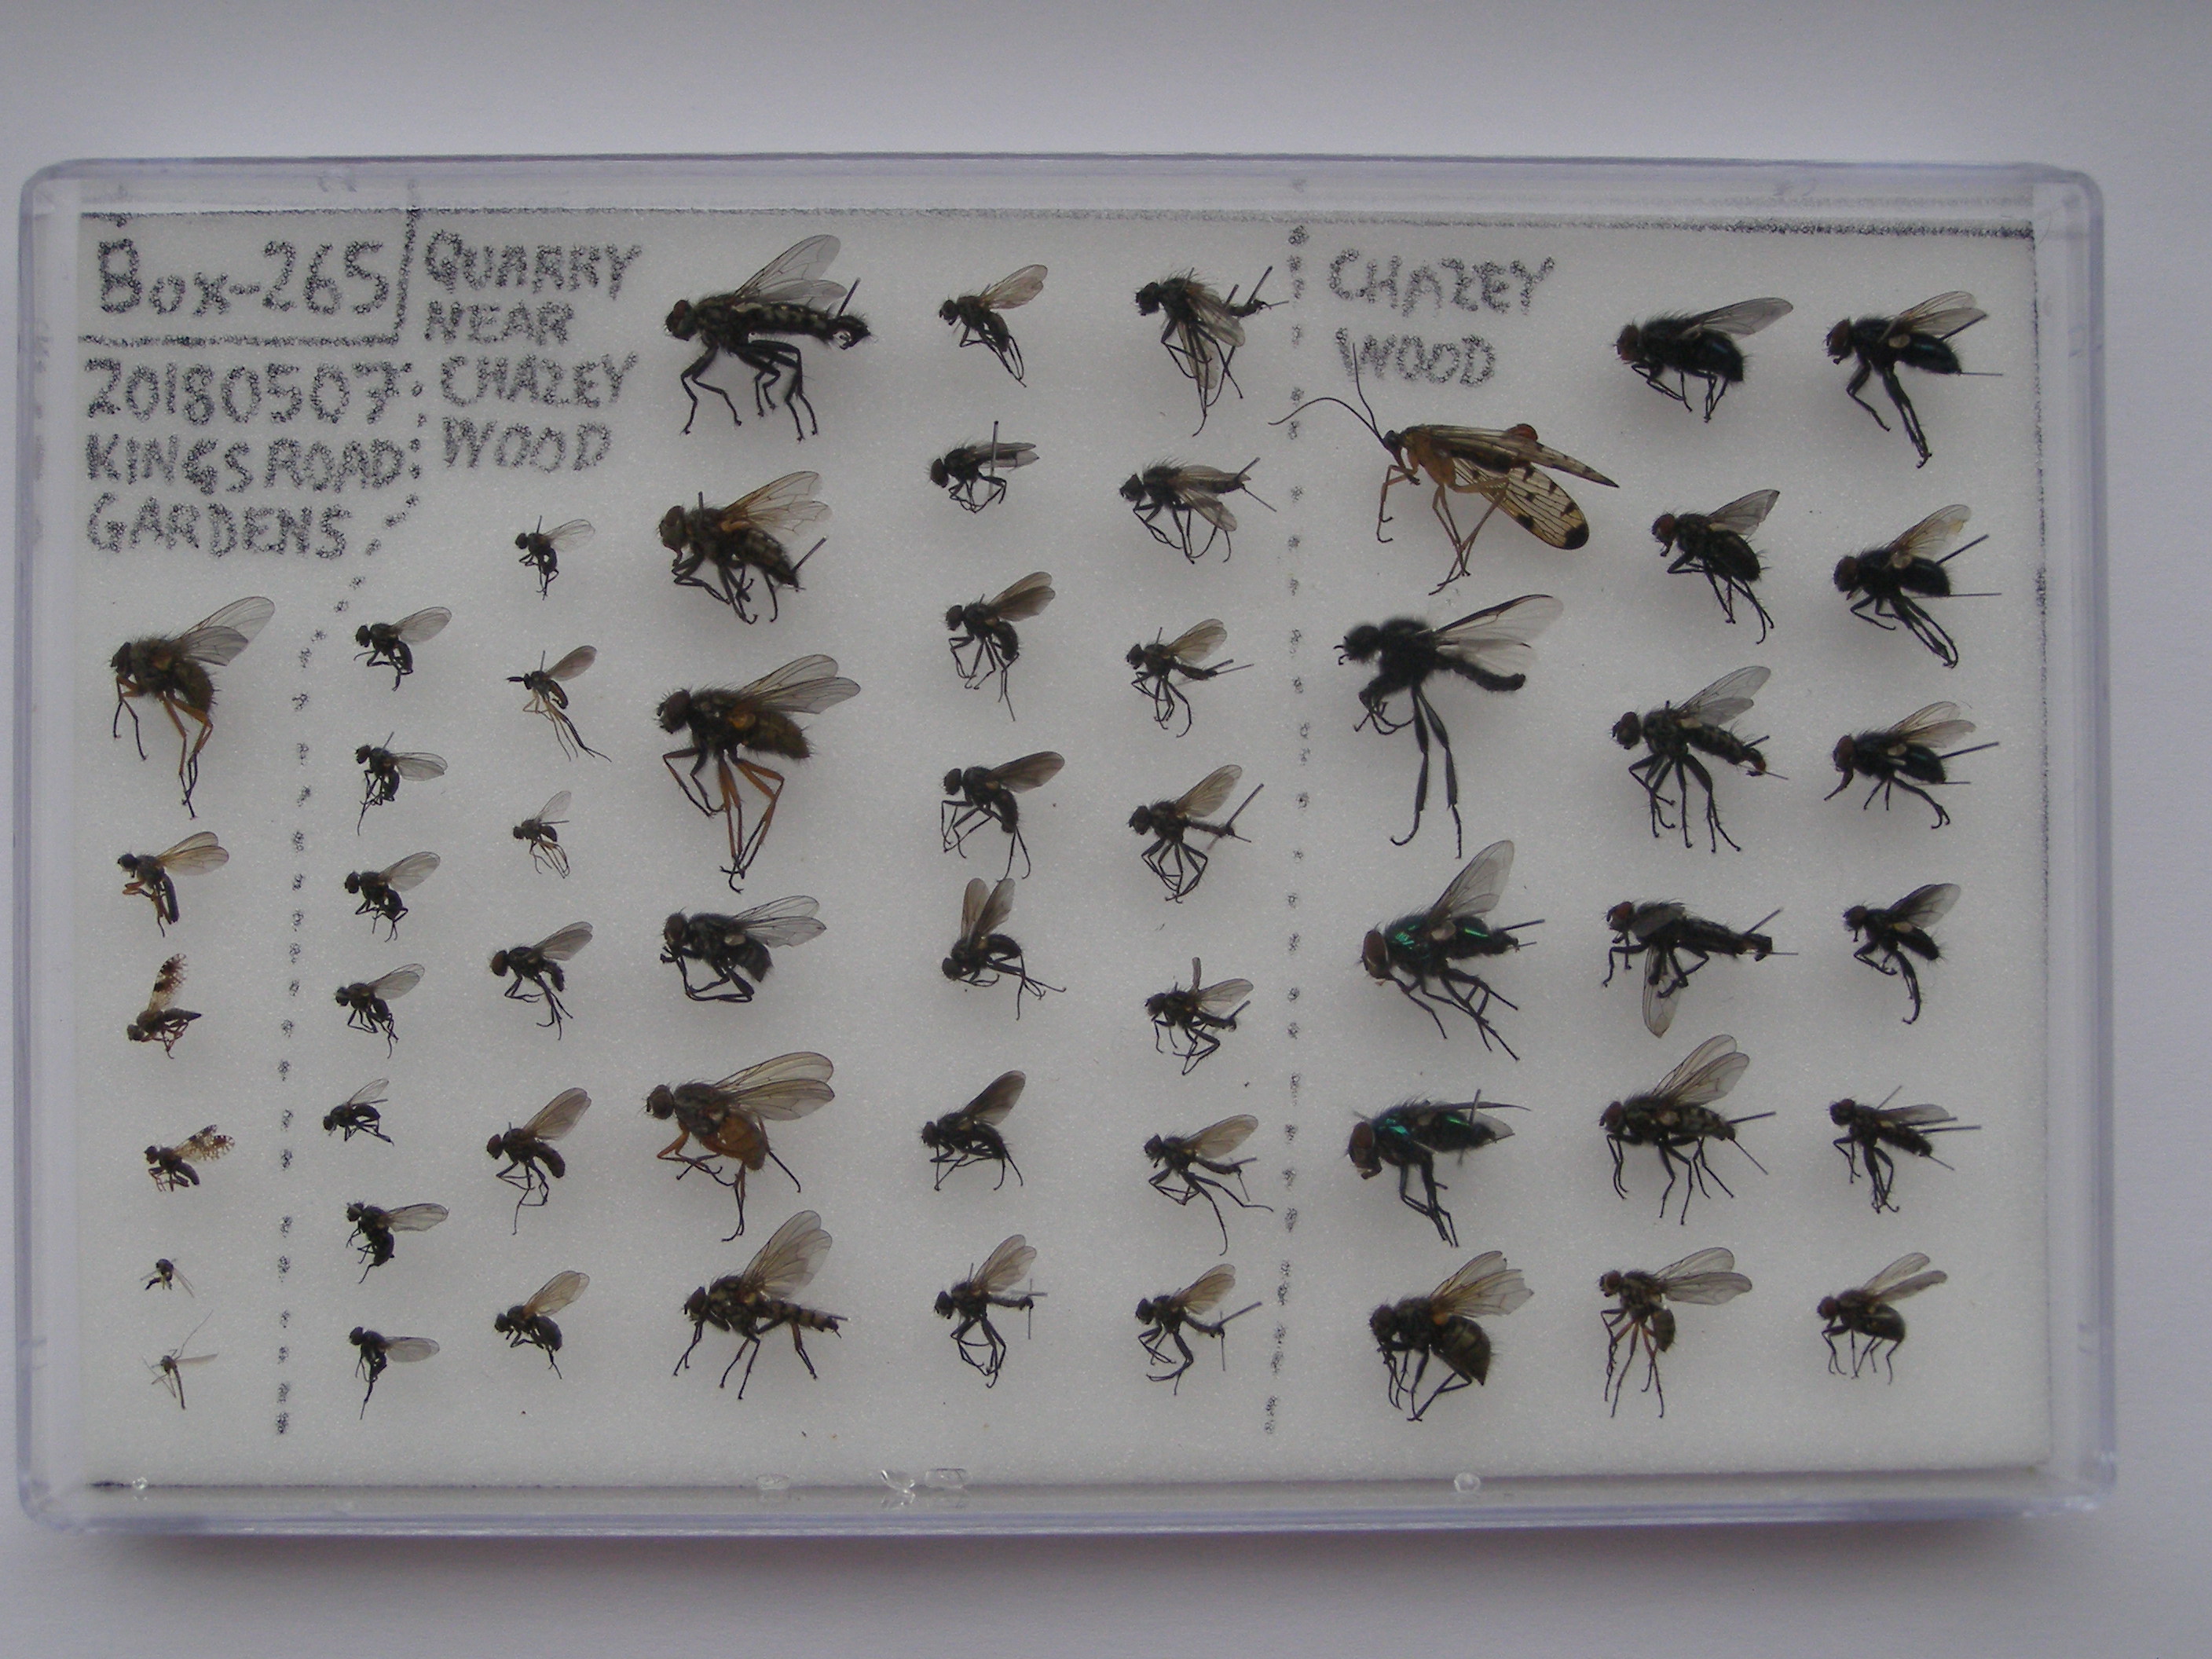 Box-265
20180507
KINGS ROAD
GARDENS
QUARRY
NEAR
CHAZEY
WOOD
CHAZEY
WOOD